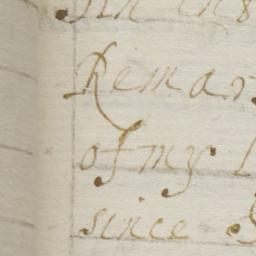 in
Remar
of my
since